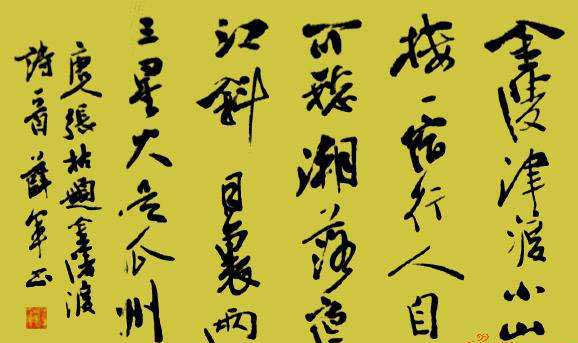 金陵津渡小山
楼一宿行人自
可愁潮落夜
江斜月裏兩
三星火是瓜州
唐人張祜題金陵渡
詩一首薛軍书